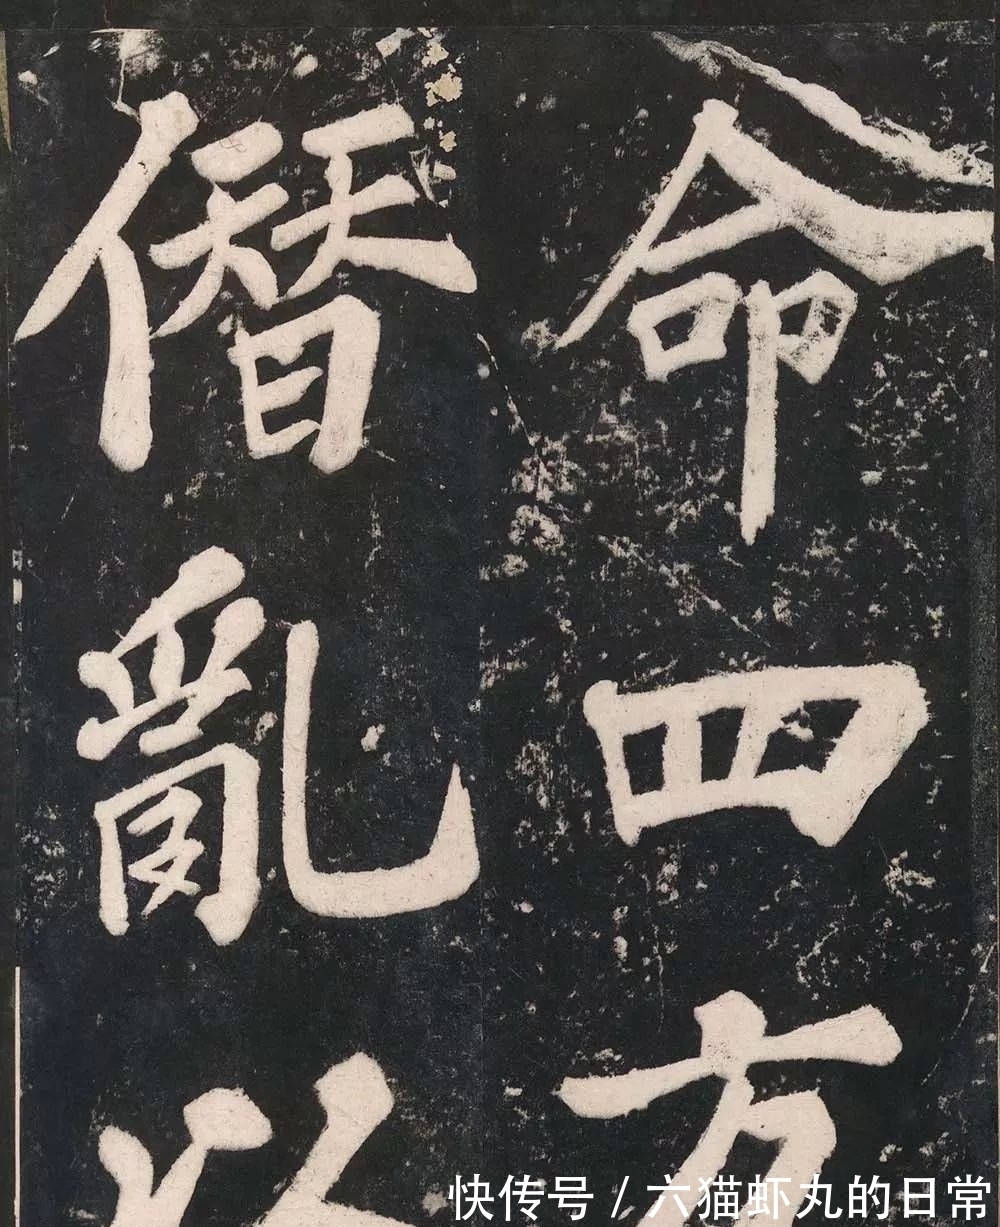 命四方
僭亂以
快传号 / 六猫虾丸的日常